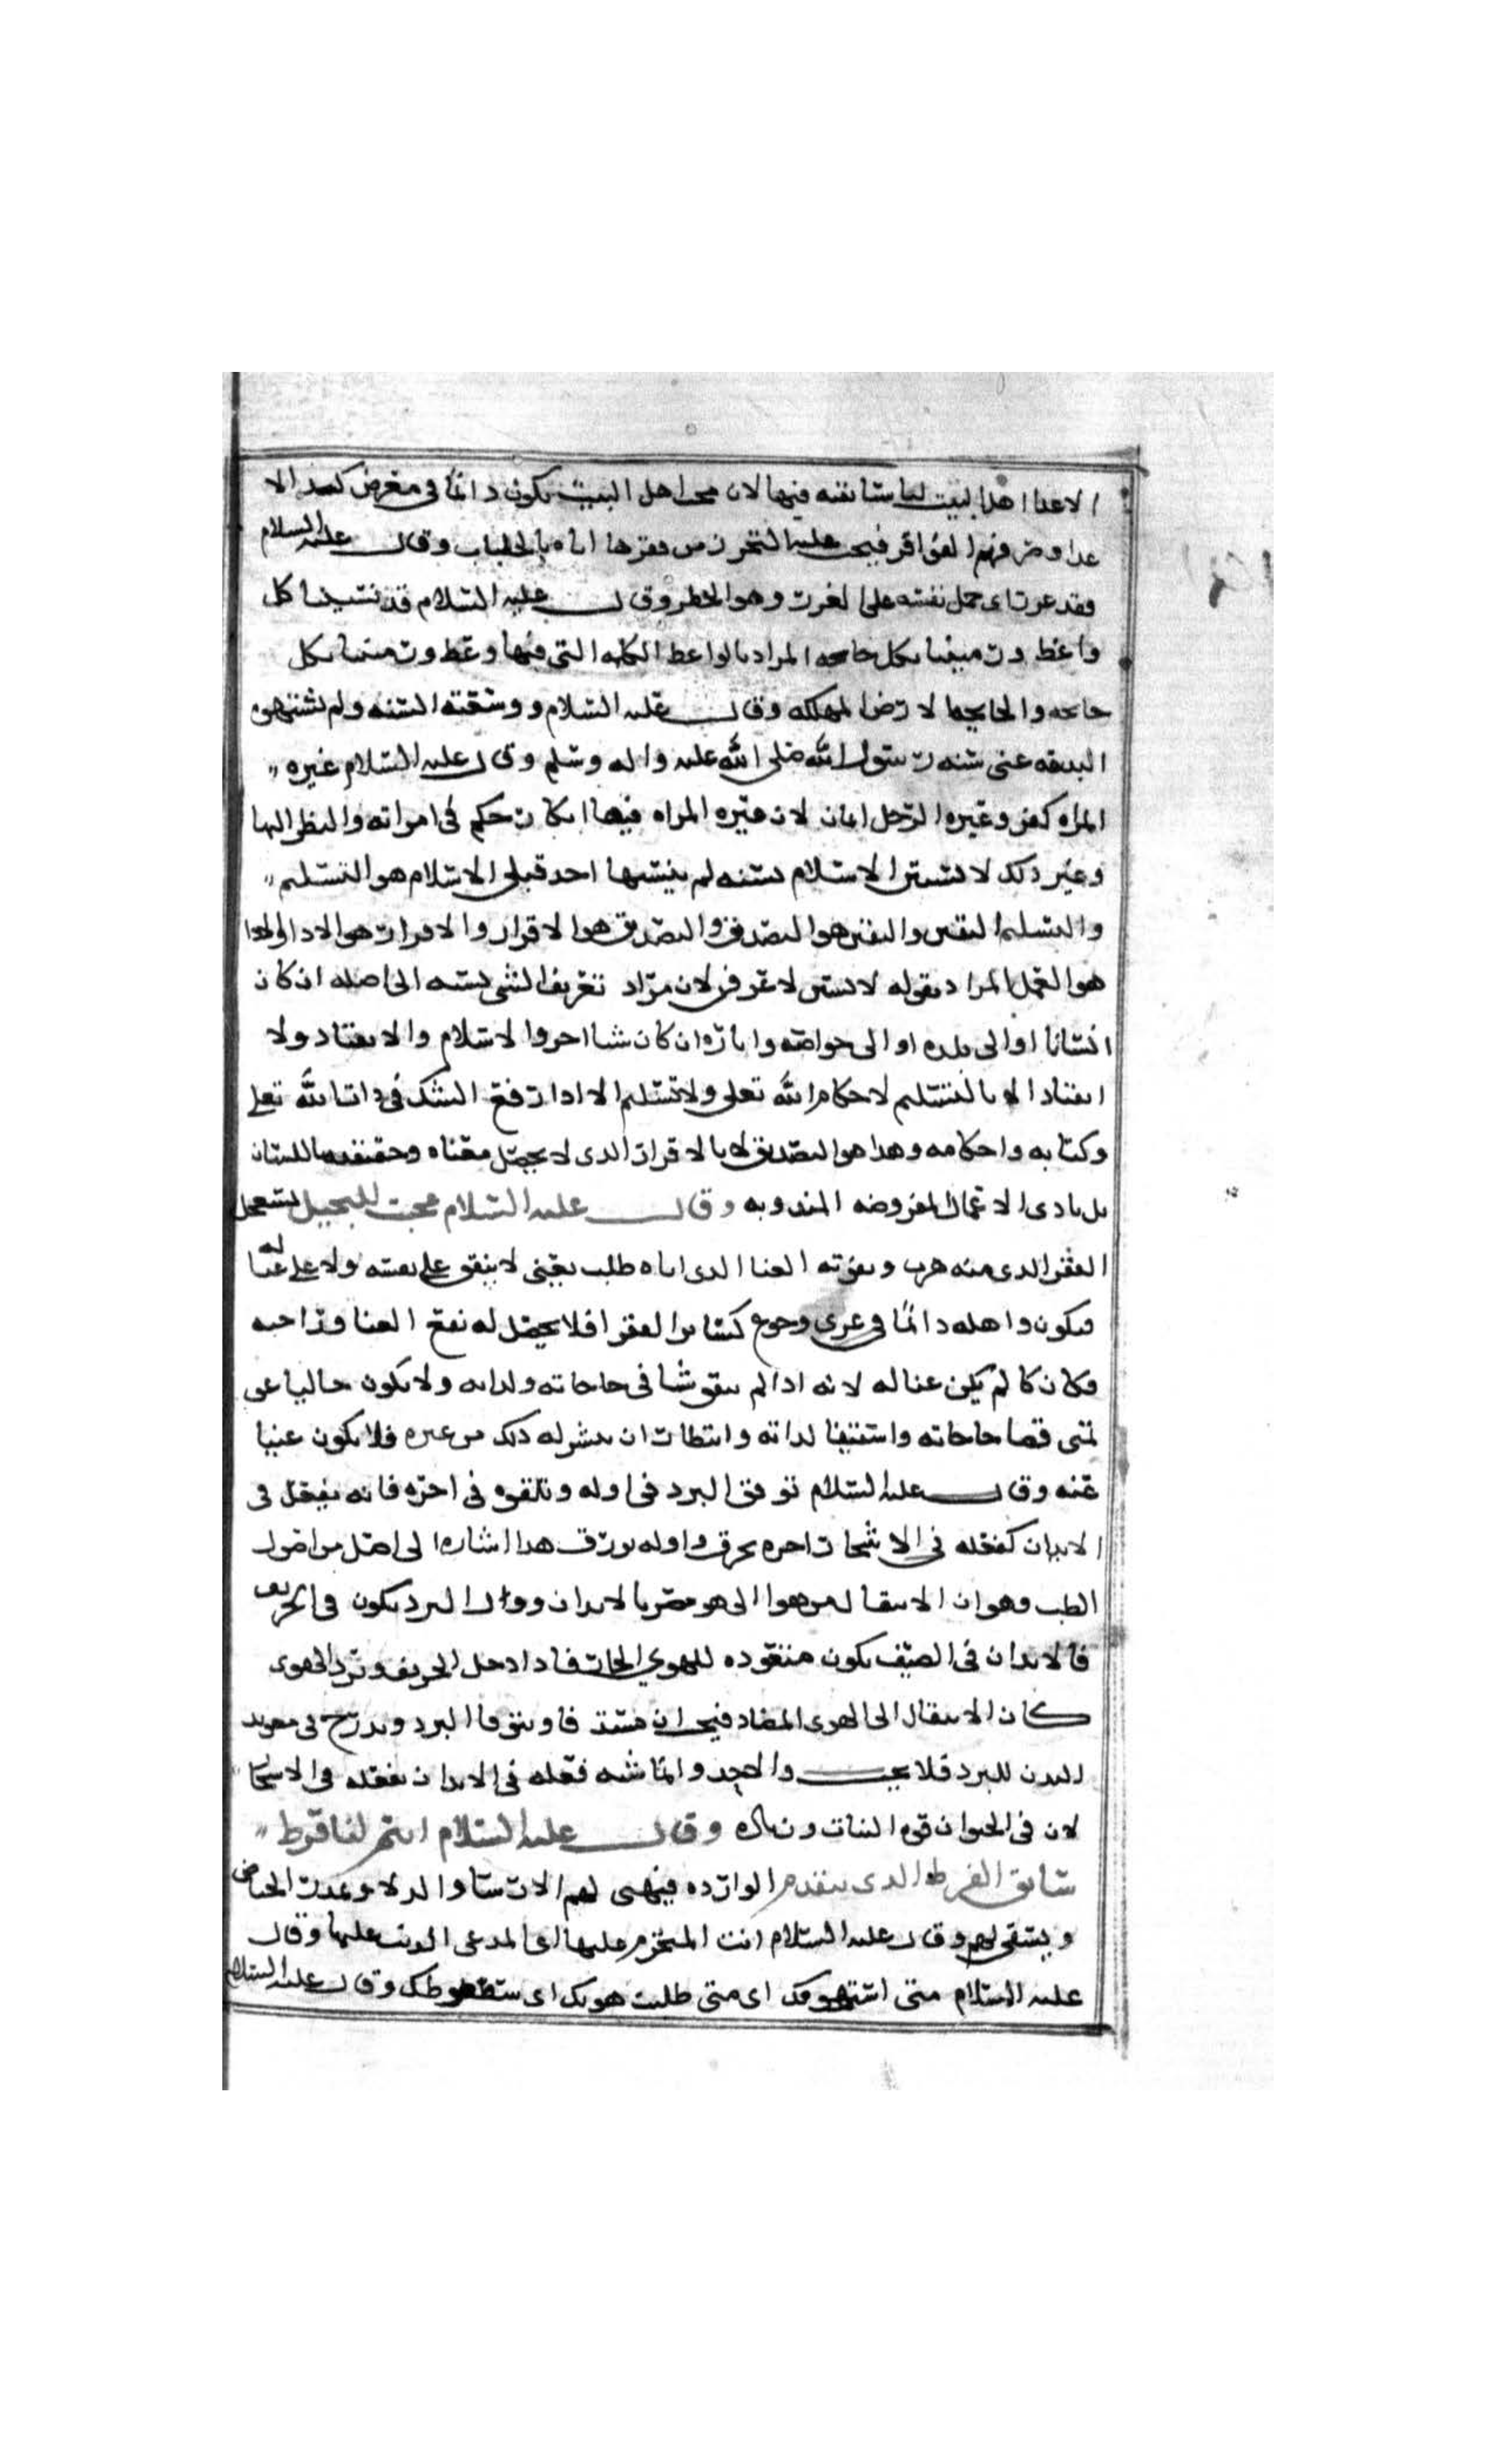 الاعدا اهل البيت لما سنا بقته فيها لان محب اهل البيت يكون دائما فى معرض كيد الا
عدا وصروفهم الفواقر فيجب عليه التحرز من فقرها اياه بالجلباب وقال عليه السلام
فقد غرر اى حمل نفسه على الغرر وهو الخطر وقال عليه السلام قد نسينا كل
واعظ ورمينا بكل جايحه المراد بالواعظ الكلمه التى فيها وعظ ورمينا بكل
جايحه والجايحه لا رض المهلكه وقال عليه السلام ووسعته السنه ولم
البدعه عنى سنه رسول الله صلى الله عليه واله وسلم وقال عليه السلام غيره
المراه كفر وغيره الرجل ايمان لان غيره المراه فيها انكار حكم فى امراته والنظر اليها
وغير ذلك لانسبن الاسلام نسبه لم ينسبها احد قبلى الاسلام هو التسليم
والتسليم اليقين واليقين هو التصديق والتصديق هو الاقرار والاقرار هو الادا والادا
هو العمل المراد بقوله لانسبن لاعرفن لان مراد تعريف الشى نسبته الى اصله ان كان
انسانا او الى بلده او الى خواصه واياره ان كان شيا اخر والاسلام والانقياد ولا
انقياد الا بالتسليم لاحكام الله تعلى ولا تسليم الا اذا ارتفع الشك فى ذات الله تعلى
وكتابه واحكامه وهذا هو التصديق لا بالاقرار الذى لا يحصل معناه وحقيقته باللسان
بل بادى الاعمال المفروضه المندوبه وقال عليه السلام عجبت للبخيل يستعجل
الفقر الذى منه هرب ويفوته الغنا الذى اياه طلب يعنى لا ينفق على نفسه ولا على عياله
فيكون واهله دائما فى عرى وجوع كساير الفقرا فلا يحصل له نفع الغنا وراحته
فكان كالم يكن غنا له لانه اذا لم ينفق شيا فى حاجاته ولذاته ولا يكون خاليا عن
تمنى قضا حاجاته واستيفا لذاته وانتظار ان يتيسر له ذلك من غيره فلا يكون غنيا
عنه وقال عليه السلام توقو البرد فى اوله وتلقوه فى اخره فانه يفعل فى
الابدان كفعله فى الاشجار اخره يحرق واوله يورق هذا اشاره الى اصل من اصول
الطب وهو ان الانتقال من هوا الى هو مضر بالابدان واول البرد يكون فى الخريف
فالابدان فى الصيف يكون متعوده للهوى الحار فاذا دخل الخريف وبرد الهوى
كان الانتقال الى الهوى المضاد فيجب ان يتوقا البرد ويدرج فى تعويد
البدن للبرد فلا يجب وانما شبه فعله فى الابدان بفعله فى الاشجار
لان فى الحيوان قوه النبات وزياده وقال عليه السلام انتم لنا فرط
سابق الفرط الذى يتقدم الوارده فيهى لهم الارسا والدلا ويمدر الحياض
ويستقى لهم وقال عليه السلام انت المتجرم عليها اى المدعى الذنب عليها وقال
عليه السلام متى استهوتك اى متى طلبت هويك اى سقوطك وقال عليه السلام